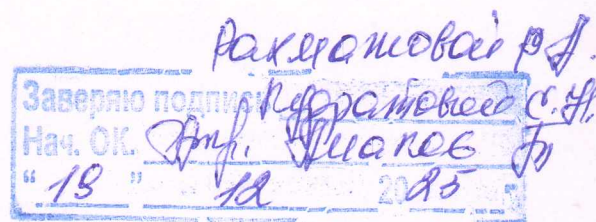 Рахматовой Р.А.
Заверяю подписи Кудратовой С.Н.
Нач. ОК.
"19" 12 2025